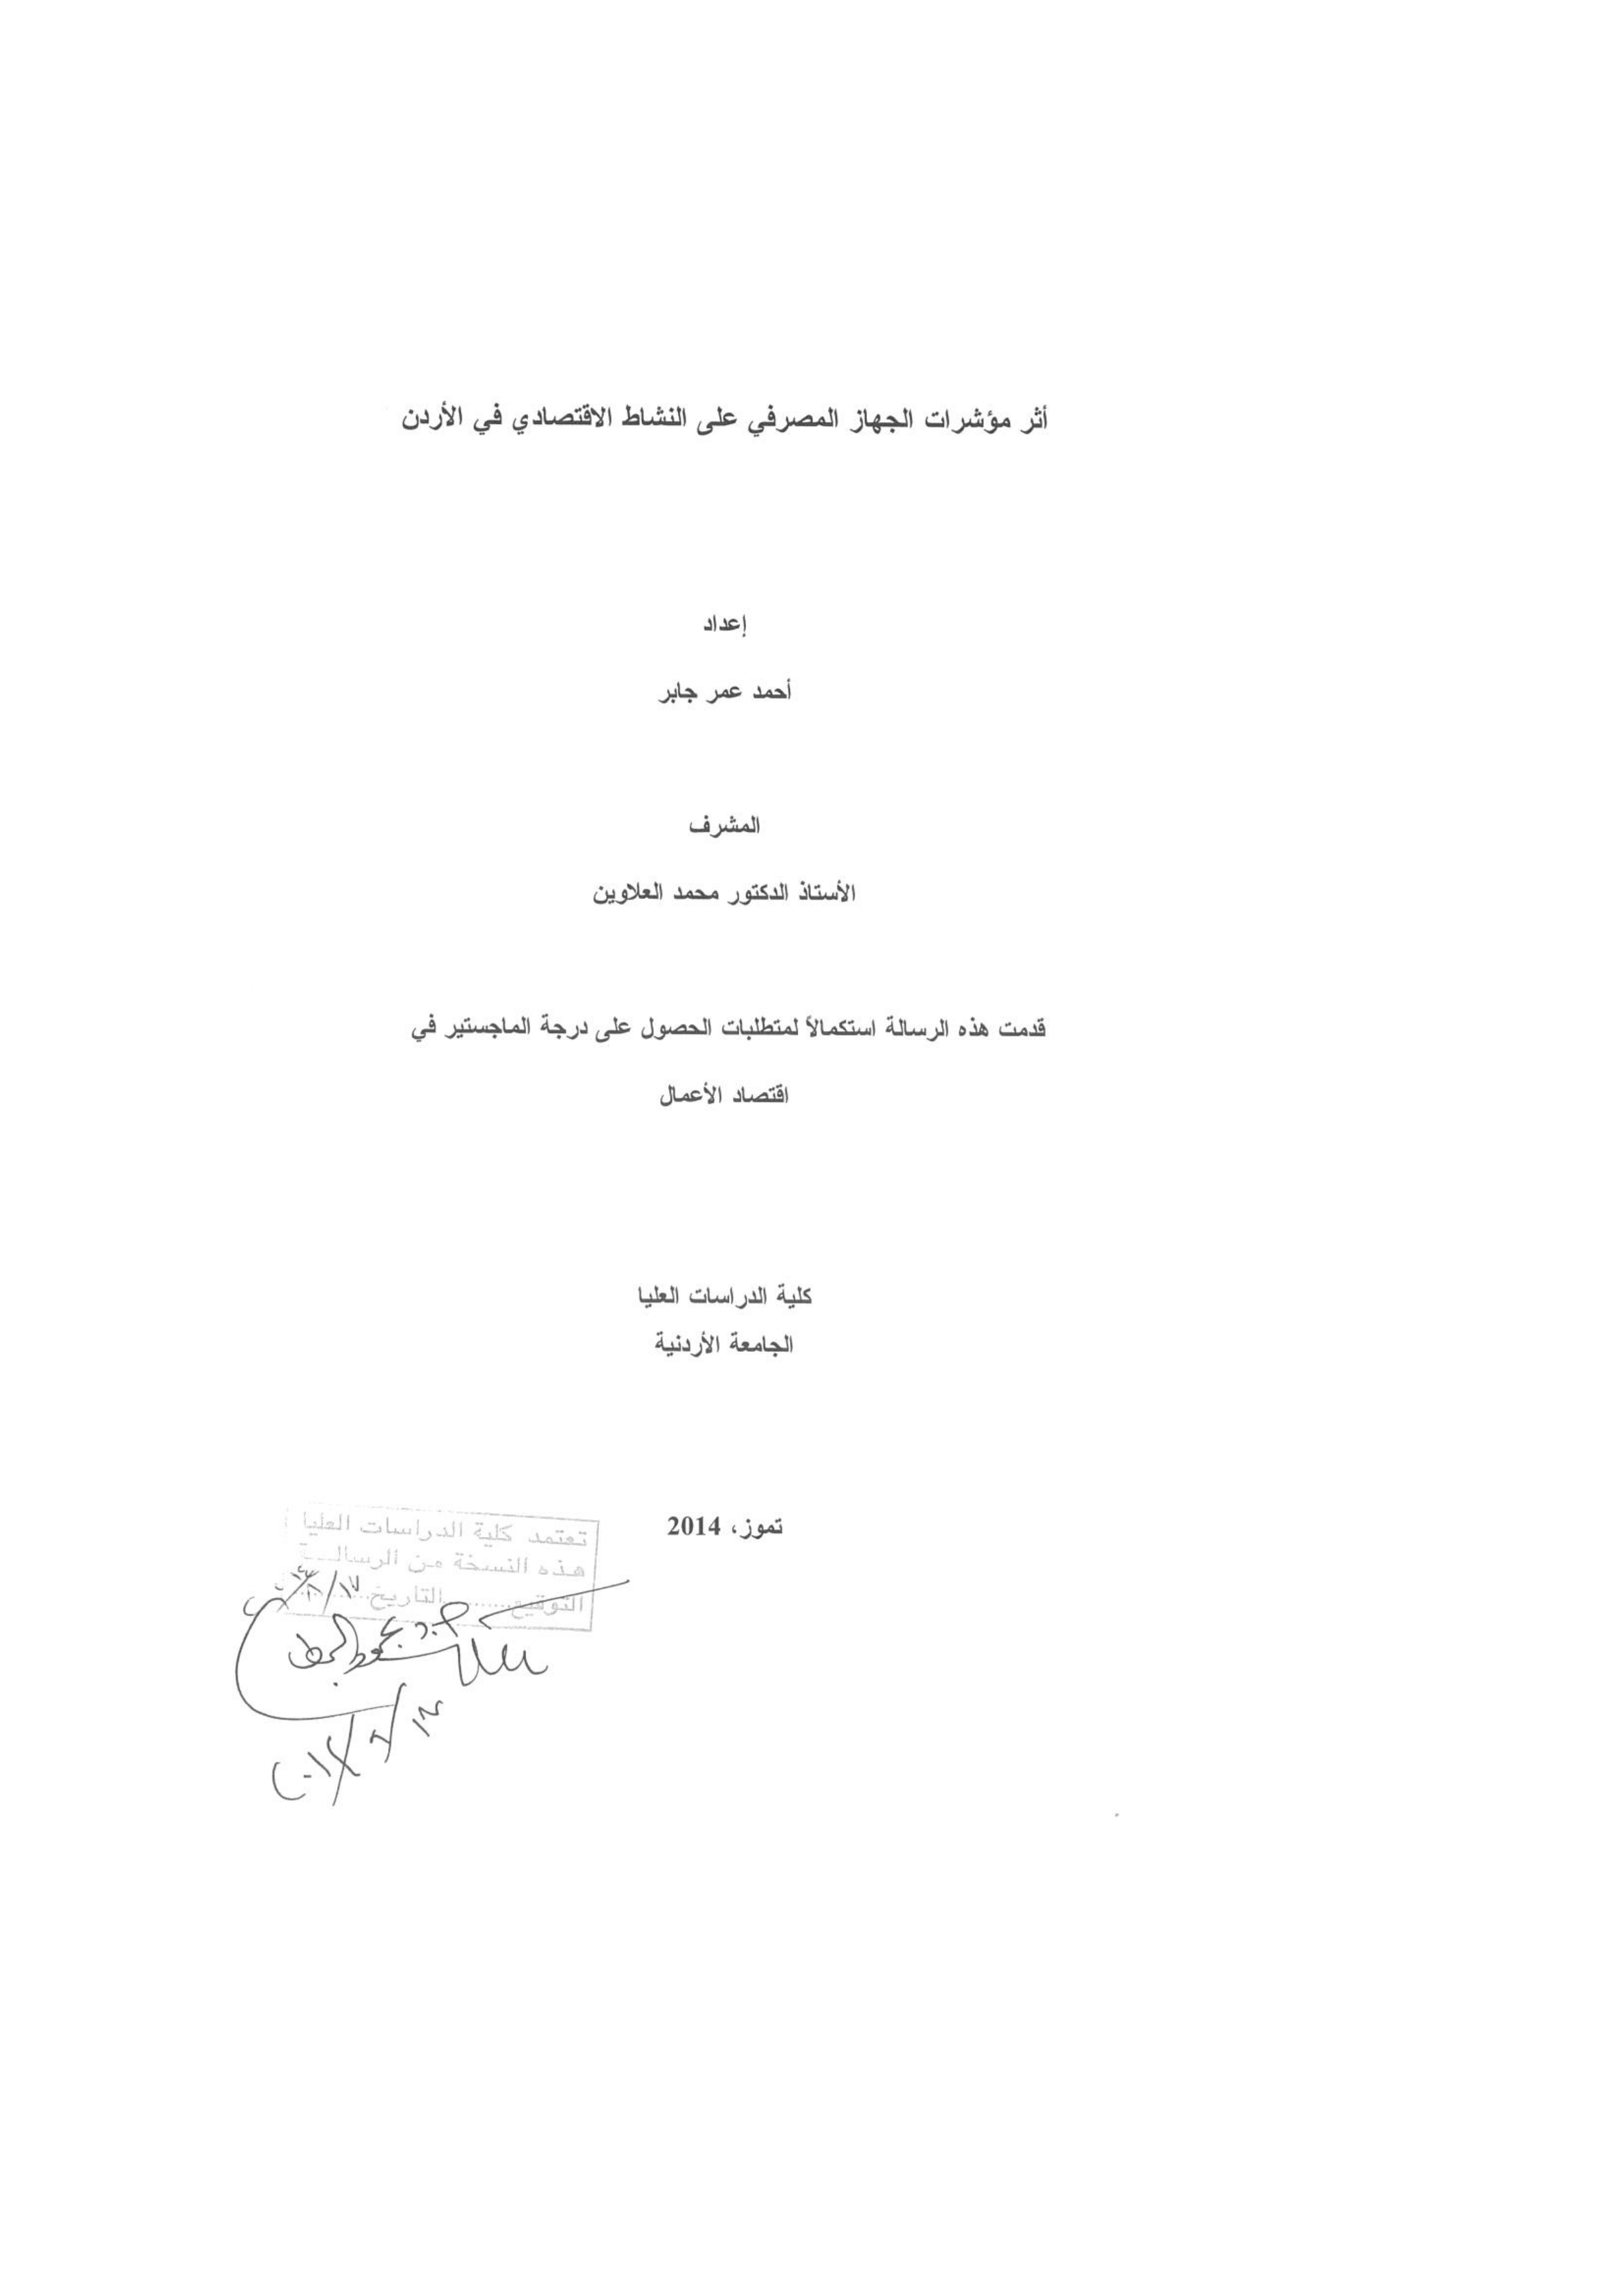 أثر مؤشرات الجهاز المصرفي على النشاط الاقتصادي في الأردن
إعداد
أحمد عمر جابر
المشرف
الأستاذ الدكتور محمد العلاوين
قدمت هذه الرسالة استكمالاً لمتطلبات الحصول على درجة الماجستير في
اقتصاد الأعمال
كلية الدراسات العليا
الجامعة الأردنية
تموز، 2014
تعتمد كلية الدراسات العليا
هذه النسخة من الرسالـــة
التوقيع.........التاريخ.........